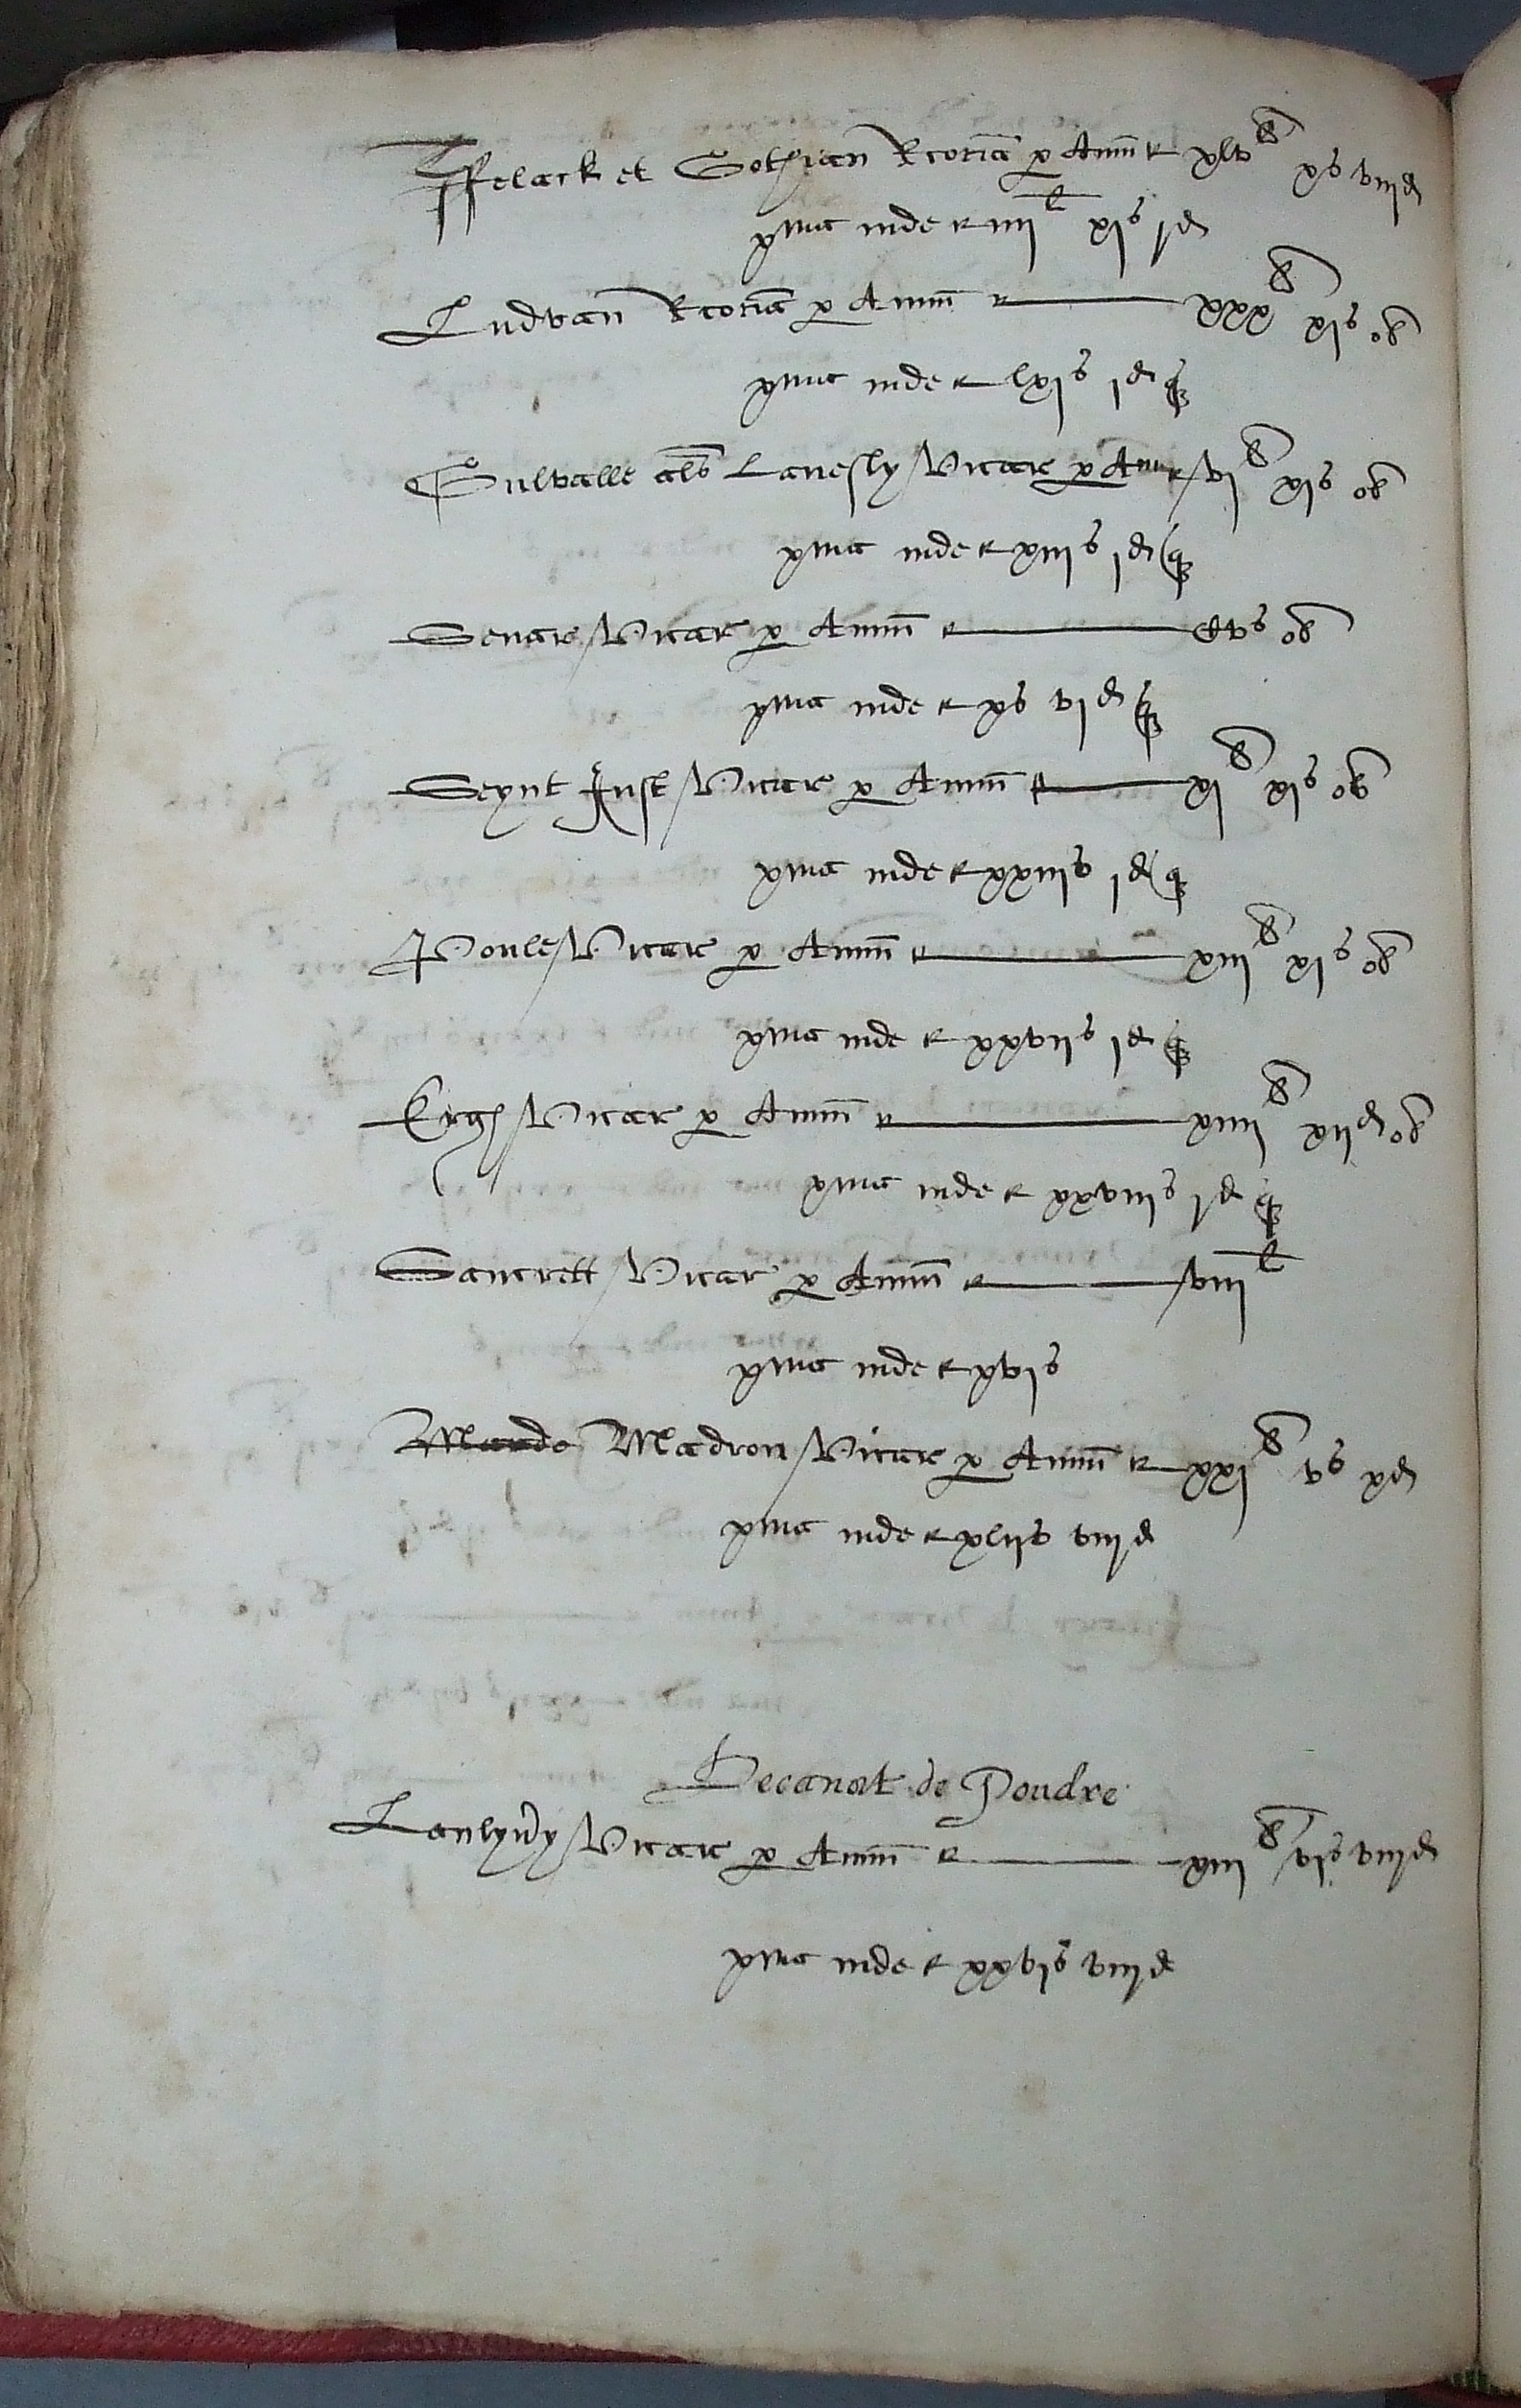 Ffelack et Gothian Rcoria p Annu xlv li xs viijd
xma inde iiij l xjs jd
Ludvan Rcoria p Annu xxx li xjs ob
xma inde lxjs jd q
Gulvalle als Lanesly Vicar p Annu vj li xjs ob
xma inde xiijs jd q
Senar Vicar p Annu cvs ob
xma inde xs vjd q
Seynt Just Vicar p Annu xj li xjs ob
xma inde xxiijs jd q
Poule Vicar p Annu xiij li xjs ob
xma inde xxvijs jd q
Ergh Vicar p Annu xiiij li xijd ob
xma inde xxviijs jd q
Sancrett Vicar p Annu viij l
xma inde xvjs
Mardo Madron Vicar p Annu xxj li vs xd
xma inde xlijs viijd
Decanat de Poudre
Vicar p Annu xiij li vjs viijd
xma inde xxvjs viijd